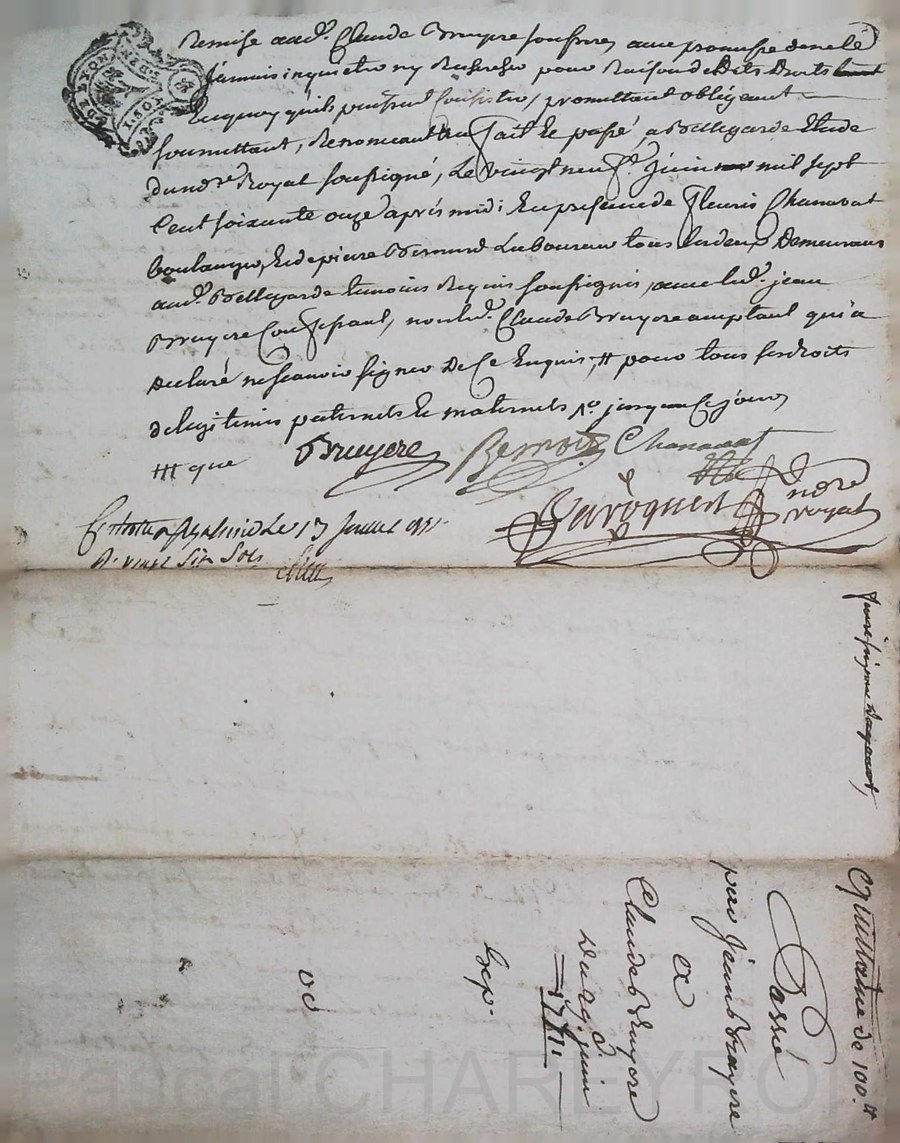 Remise aud.t Claude Bruyere sous
jamais inquietter ny Rechercher pour Raison desdits Droits
En quoy quils puissent Consister, promettant obligeant
soumettant, Renoncant &a fait Et passé, a Bellegarde Etude
du no.re Royal soussigné, Le vingt neuf.e juin mil sept
Cent soixante onze apres midi En presence de Fleuris Chanavat
boulanger, Et de pierre Benoist Laboureur tous Les deux Demeurans
aud.t Bellegarde temoins Requis soussignés, avec led.t jean
Bruyere Confessant, non led.t Claude Bruyere acceptant qui a
Declaré ne scavoir signer De Ce Enquis, # pour tous ses droits
de legitimes paternels Et maternels jusqu a Ce jour
++ que
Bruyere Benoist Chanavat
Baroquert no.re royal
Controllé le 13 Juillet 1771
R. vingt Six Sols
GEN. DE LYON
1. SOL
Quittance de 100.#
Passé
par Jean Bruyere
a
Claude Bruyere
Du 29. juin
1771
Exp.
Pascal CHAREYRON